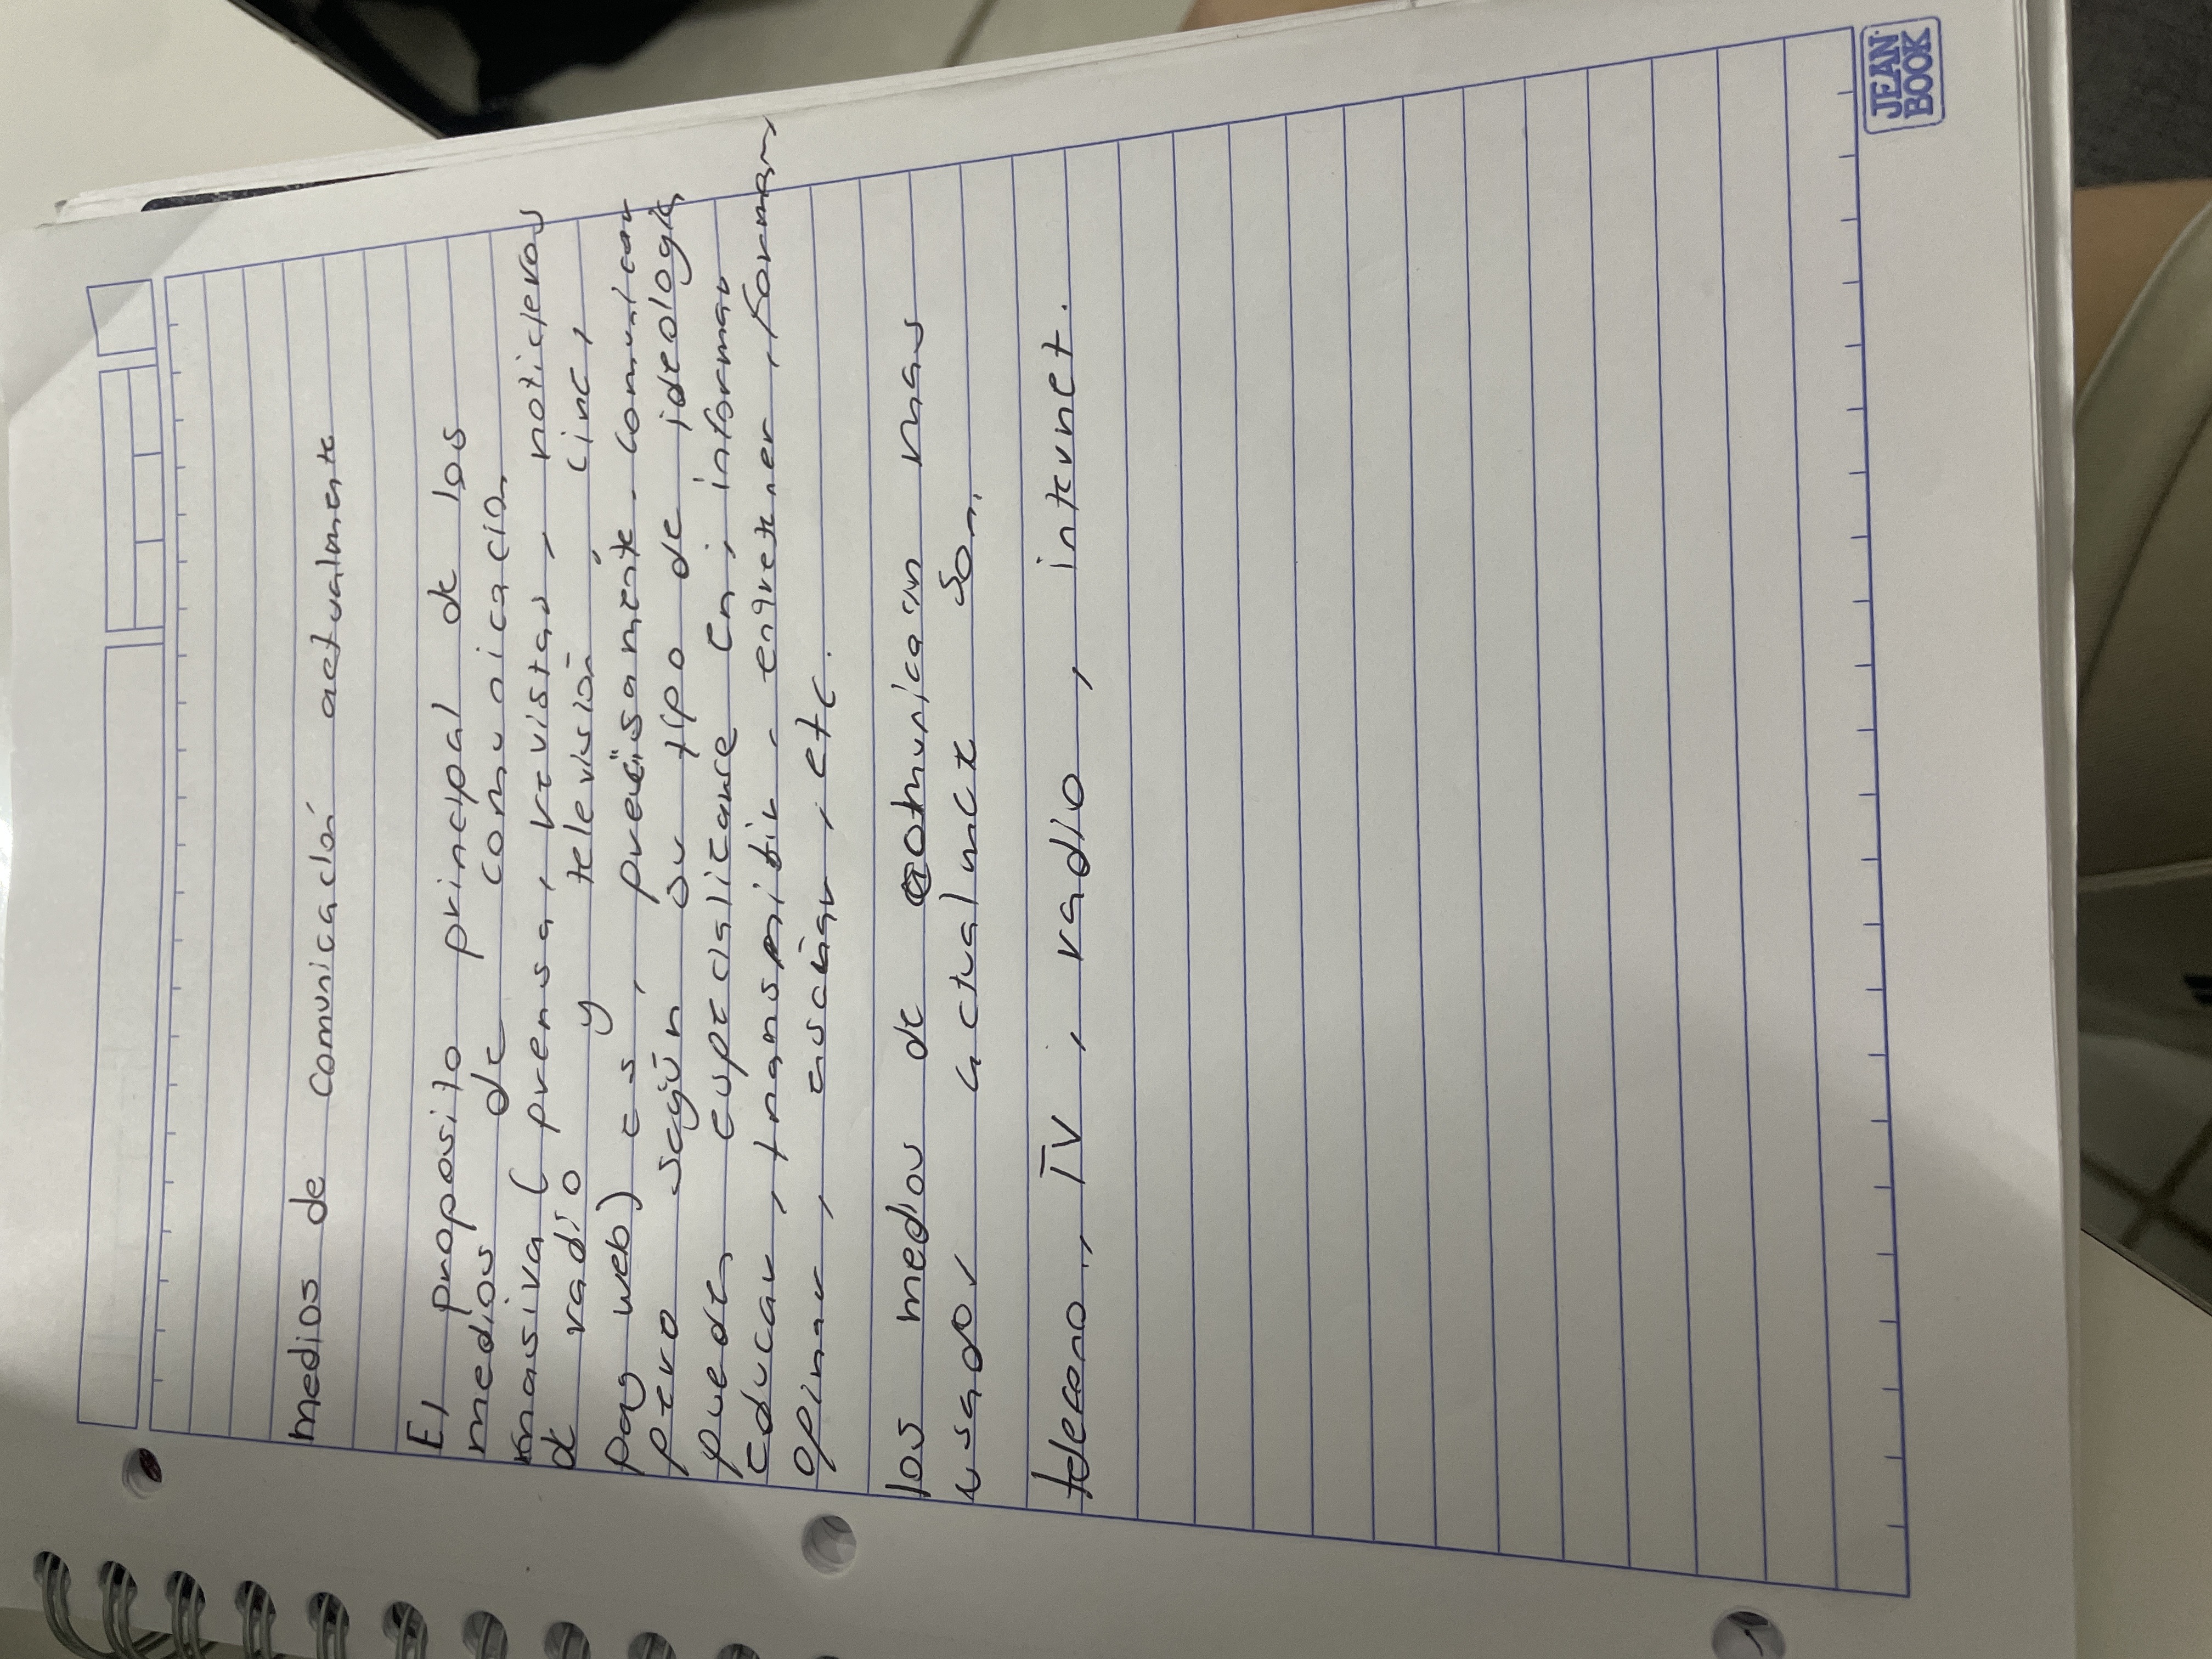 medios de comunicación actualmente
El proposito principal de los
medios de comunicacion
masiva (prensa, revistas, noticieros
de radio y televisión, cine,
pag web) es, precisamente comunicar
pero según su tipo de ideologia
pueden especializarse en; informar
educar, transmitir, entretener, formar,
opinar, enseñar, etc.
los medios de comunicacion mas
usados actualmente son.
telefono, TV, radio, internet.
JEAN
BOOK